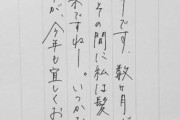 ーです。数ヶ月
その間に私は髪
ですねー。いつか
が、今年も宜しくお